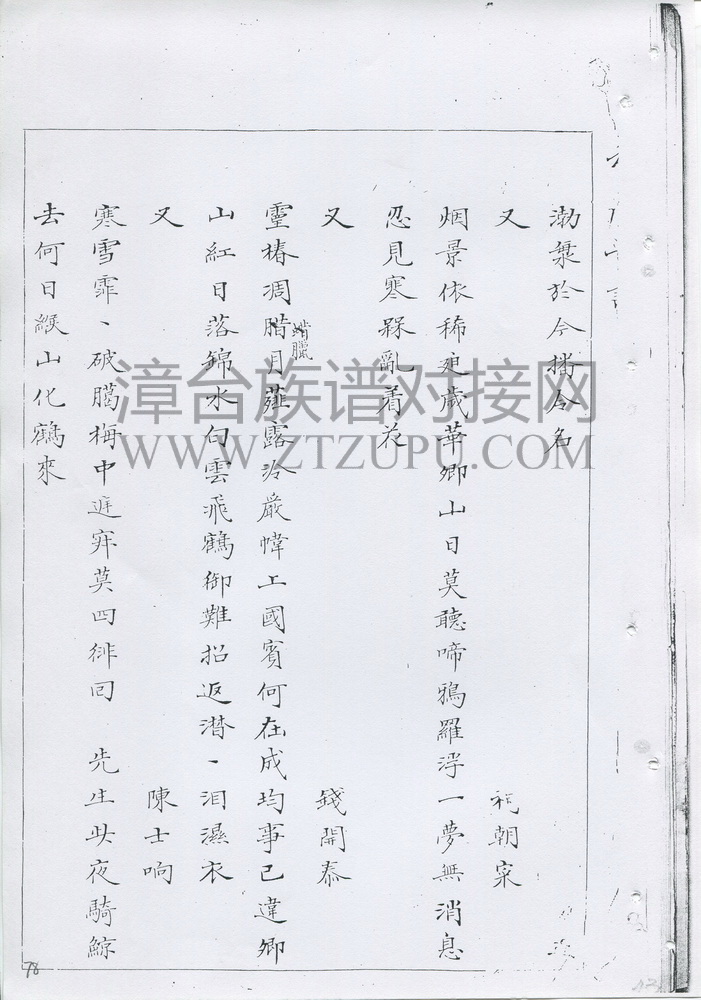 渤葉於今播令名
又 祝朝寀
烟景依稀夗歲華卿山日莫聽啼鴉羅浮一夢無消息
忍見寒槑亂着花
又 錢開泰
靈椿凋腊月薤露泠嚴幃上國賓何在成均事已違卿
腊臘
山紅日落錦水白雲飛鶴御難招返潸、泪濕衣
又 陳士响
寒雪霏、破臈梅中逰穽莫四徘囘 先生此夜騎鯨
去何日緱山化鶴來
漳台族谱对接网
WWW.ZTZUPU.COM
78